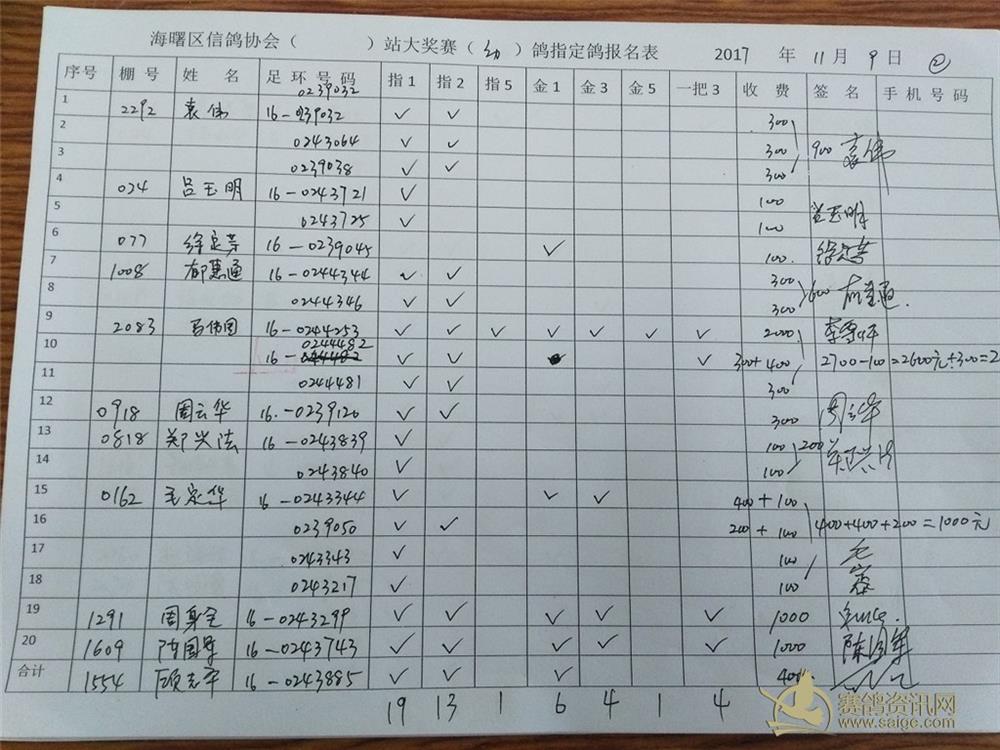 海曙区信鸽协会（ ）站大奖赛（幼）鸽指定鸽报名表 2017 年 11月 9日 ②
序号 棚号 姓名 足环号码 指1 指2 指5 金1 金3 金5 一把3 收费 签名 手机号码
0239032
1 2292 袁伟 16-0239032 ✓ ✓ 300
2 0243064 ✓ ✓ 300 900 袁伟
3 0239038 ✓ ✓ 300
4 024 吕玉明 16-0243721 ✓ 100
5 0243725 ✓ 100 吕玉明
6 077 徐定芳 16-0239045 ✓ 100. 徐定芳
7 1008 郁惠通 16-0244344 ✓ ✓ 300
8 0244346 ✓ ✓ 300 600 郁惠通.
9 2083 16-0244253 ✓ ✓ ✓ ✓ ✓ ✓ ✓ 2000
0244482
10 16- ✓ ✓ ✓ 300+400 2700-100=2600元+300=2
11 0244481 ✓ ✓ 300
12 0918 周云华 16.-0239120 ✓ ✓ 300 周云华
13 0818 郑兴法 16-0243839 ✓ 100 200 郑兴法
14 0243840 ✓ 100
15 0162 毛定华 16-0243344 ✓ ✓ ✓ 400+100
16 0239050 ✓ ✓ 200+100 400+400+200=1000元
17 0243343 ✓ 100 毛
18 0243217 ✓ 100
19 1291 周身全 16-0243299 ✓ ✓ ✓ ✓ ✓ 1000
20 1609 陈国军 16-0243743 ✓ ✓ ✓ ✓ ✓ 1000 陈国军
合计 1554 顾志平 16-0243885 ✓ ✓ ✓ 400
19 13 1 6 4 1 4
赛鸽资讯网
www.saige.com